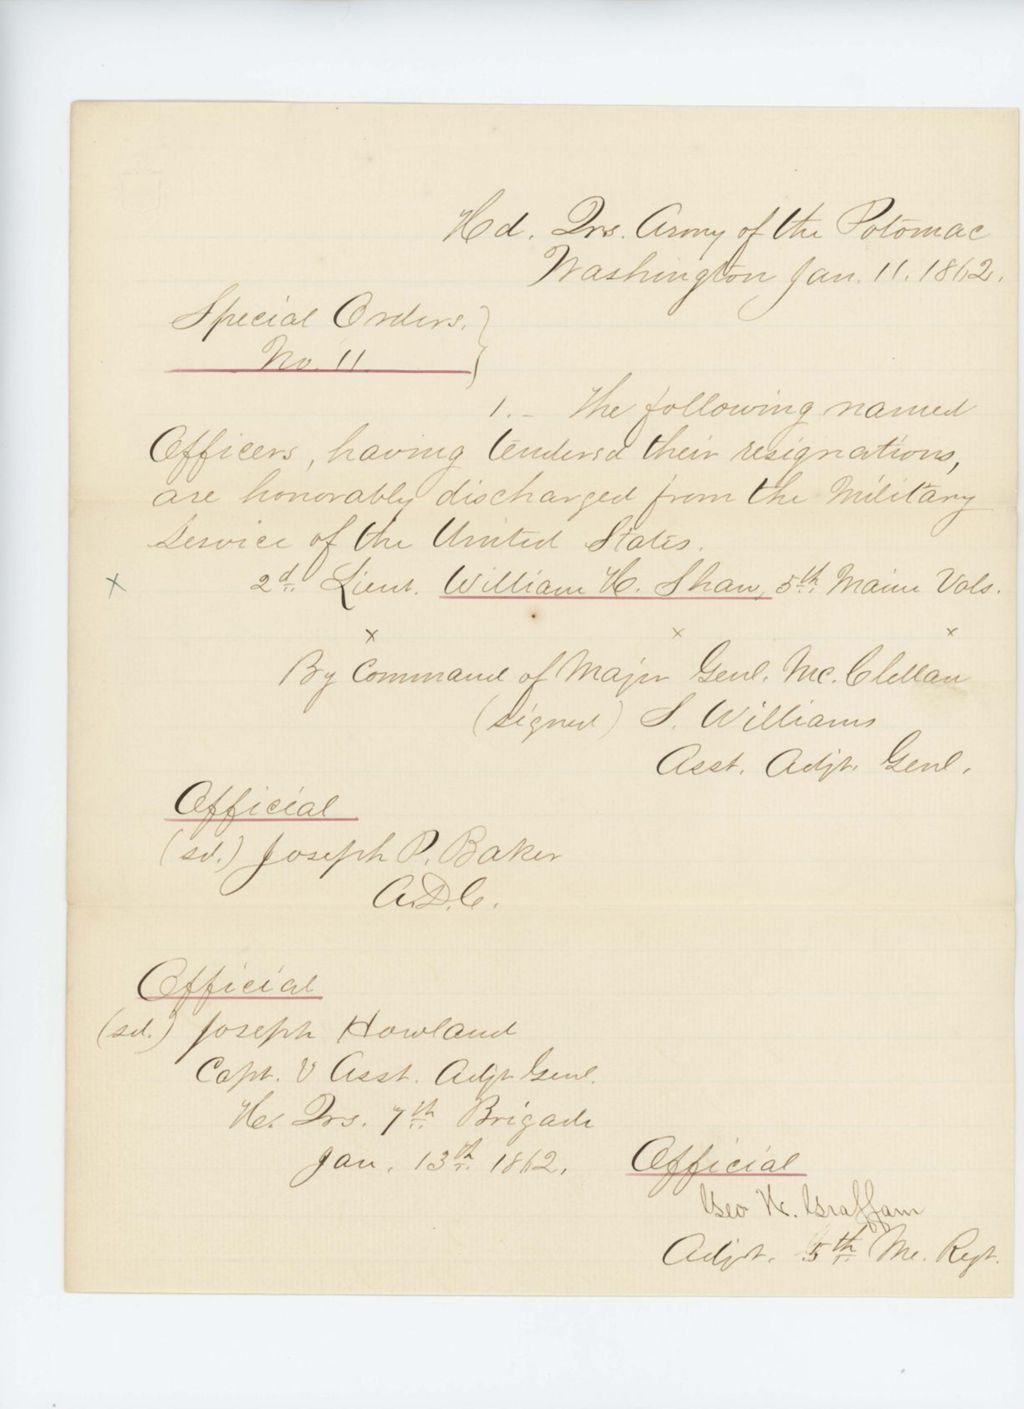 Hd. Qrs. Army of the Potomac
Washington Jan. 11. 1862.
Special Orders.
No. 11
1. - The following named
Officers, having tendered their resignations,
are honorably discharged from the Military
Service of the United States.
x 2d. Lieut. William H. Shaw, 5th. Maine Vols.
x x x
By Command of Major Genl. Mc.Clellan
(signed) S. Williams
Asst. Adjt. Genl.
Official
(sd.) Joseph P. Baker
A.D.C.
Official
(sd.) Joseph Howland
Capt. & Asst. Adjt Genl.
He. Qrs. 7th Brigade
Jan. 13th. 1862.
Official
Geo W. Graffam
Adjt. 5th Me. Regt.